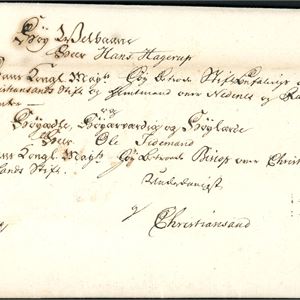 Høy Velbaarne
Herr Hans Hagerup
Hans Kongl. Mayts Høy Betroede Stiftbefalings
Christiansands Stift og Amtmand over Nedenes og
og
Høyædle, Høyærværdig og Høylærde
Herr Ole Tidemand
Hans Kongl. Mayts Høy Betroede Biskop over Christ
sands Stift
Underdanigst
Christiansand